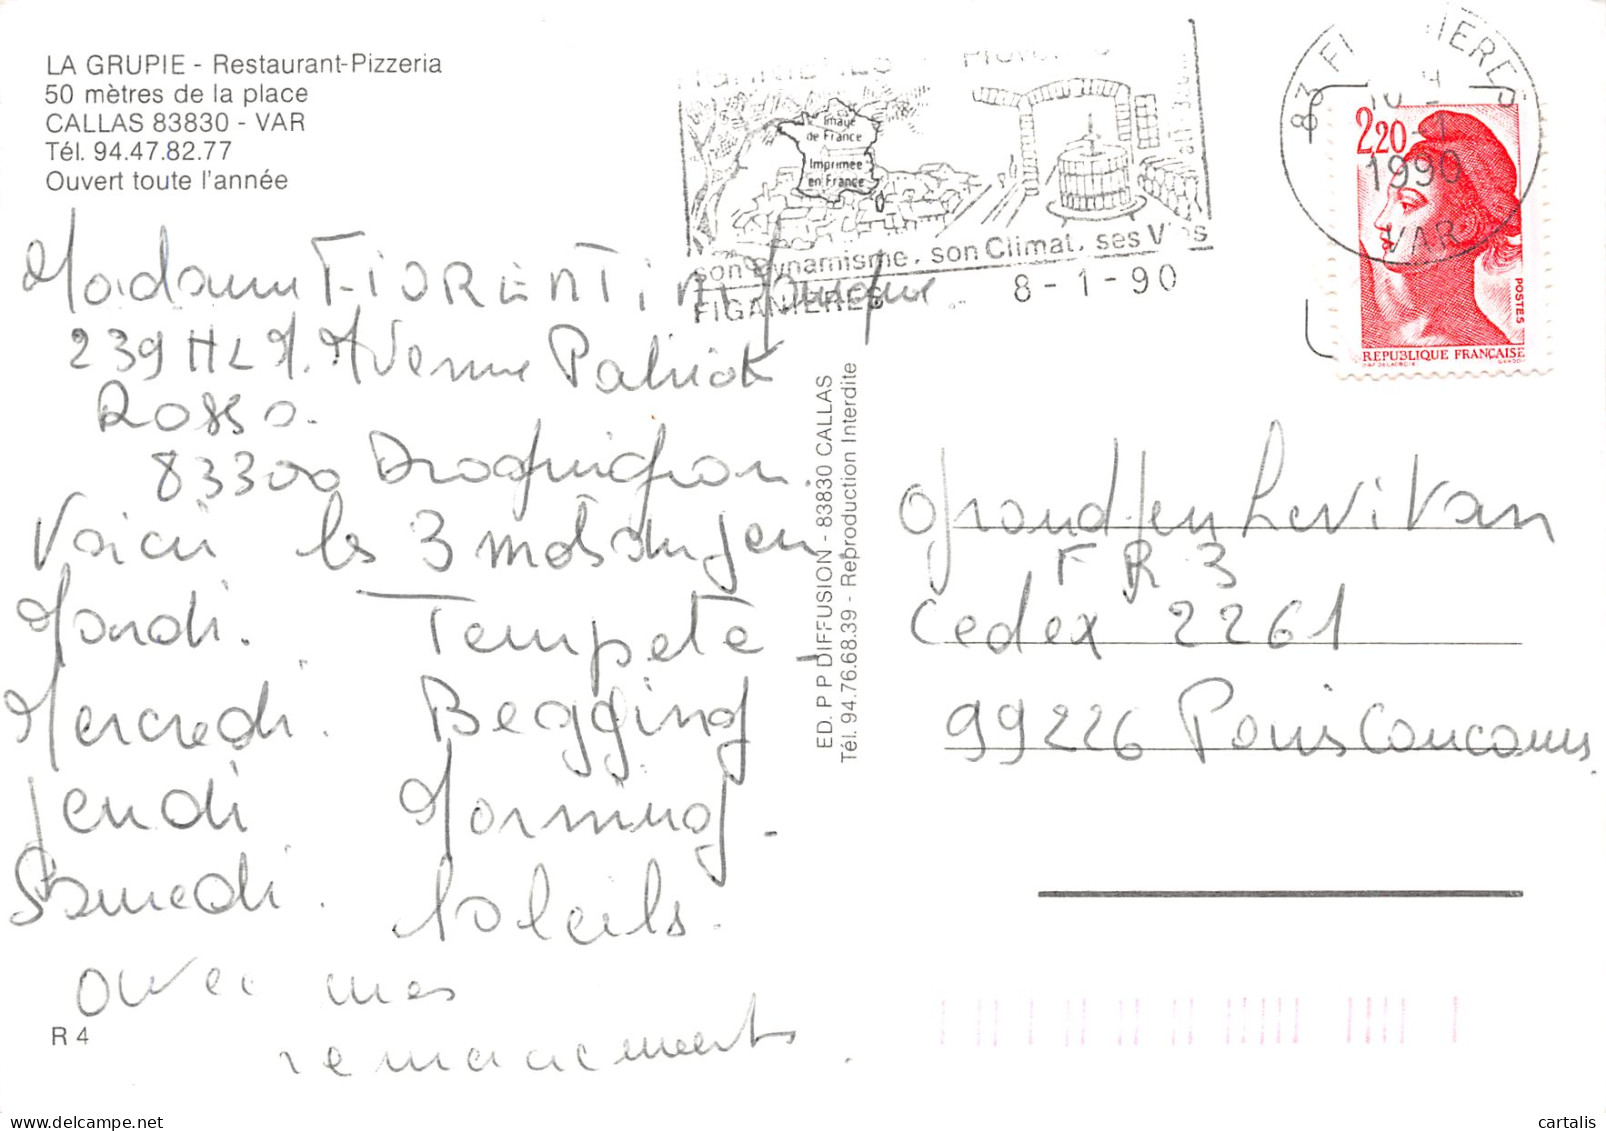 LA GRUPIE - Restaurant-Pizzeria
50 mètres de la place
CALLAS 83830 - VAR
Tél. 94.47.82.77
Ouvert toute l'année
Madame FIORENTINI
239 HLM. Avenue Patriot
Rosso.
83300 Draguignan.
Voici les 3 mots du jeu
Mardi. Tempete -
Mercredi. Begging
Jeudi Morning -
Samedi. Soleils.
avec mes
remerciements.
R 4
ED. P P DIFFUSION - 83830 CALLAS
Tél. 94.76.68.39 - Reproduction Interdite
Image
de France
Imprimée
en France
son Dynamisme, son Climat, ses Vins
FIGANIERES
8-1-90
83 FIGANIERES
1990
VAR
2,20
POSTES
REPUBLIQUE FRANÇAISE
Grand Jeu Levitan
FR 3
Cedex 2261
99226 Paris Concours.
cartalis